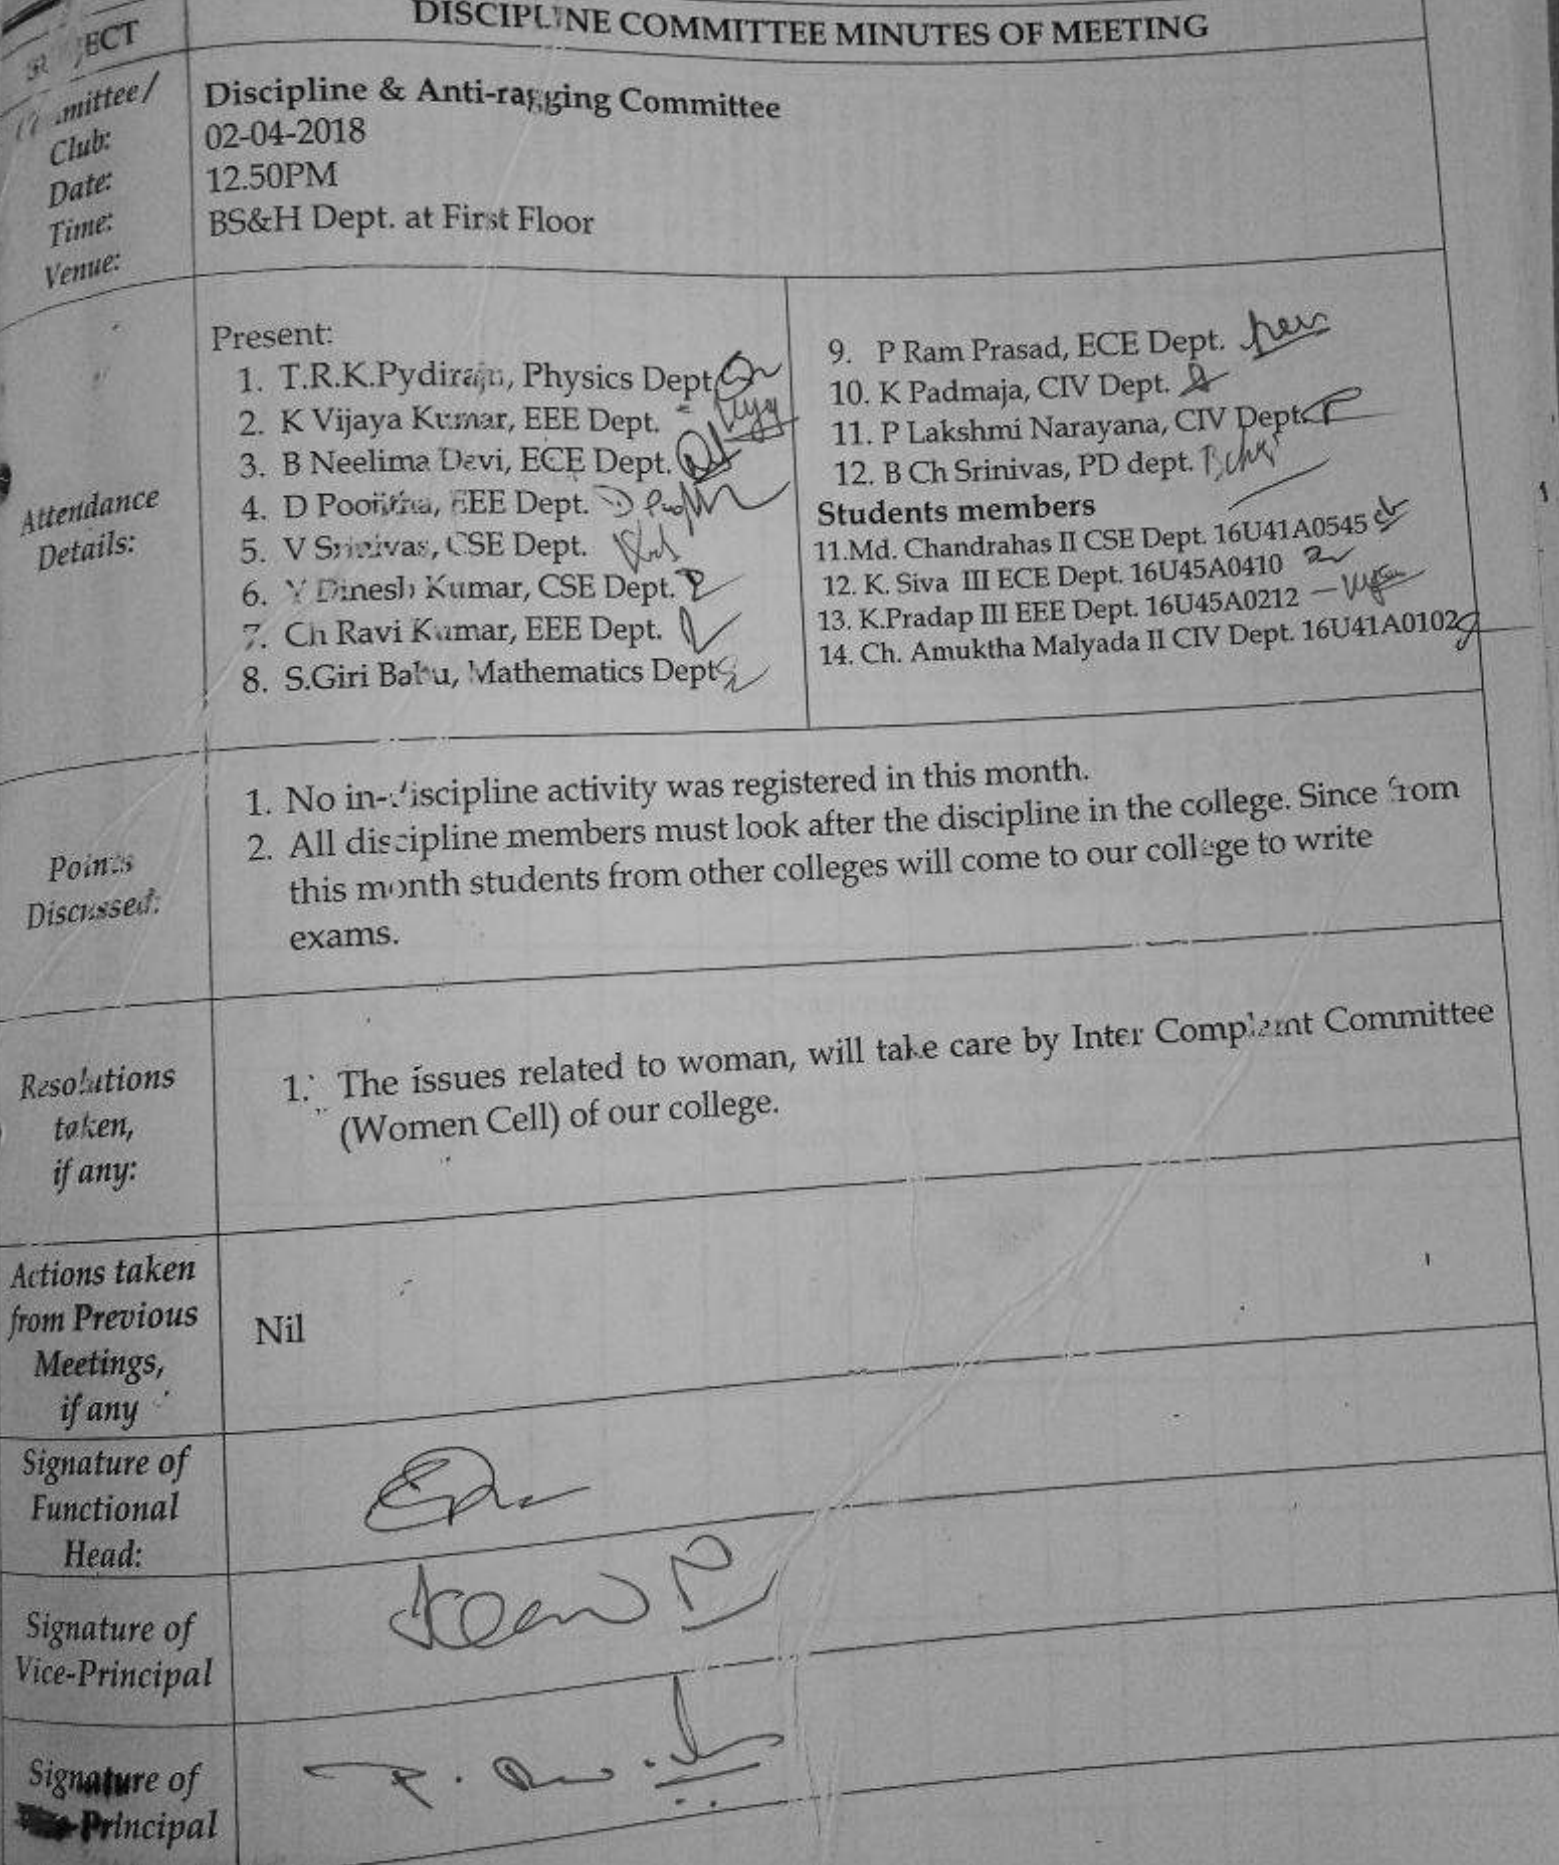 DISCIPLINE COMMITTEE MINUTES OF MEETING
Discipline & Anti-ragging Committee
Club:
02-04-2018
Date:
12.50PM
Time:
BS&H Dept. at First Floor
Venue:
Attendance
Details:
Present:
1. T.R.K.Pydiraju, Physics Dept
2. K Vijaya Kumar, EEE Dept.
3. B Neelima Devi, ECE Dept.
4. D Poojitha, EEE Dept.
5. V Srinivas, CSE Dept.
6. Y Dinesh Kumar, CSE Dept.
7. Ch Ravi Kumar, EEE Dept.
8. S.Giri Babu, Mathematics Dept
9. P Ram Prasad, ECE Dept.
10. K Padmaja, CIV Dept.
11. P Lakshmi Narayana, CIV Dept.
12. B Ch Srinivas, PD dept.
Students members
11.Md. Chandrahas II CSE Dept. 16U41A0545
12. K. Siva III ECE Dept. 16U45A0410
13. K.Pradap III EEE Dept. 16U45A0212
14. Ch. Amuktha Malyada II CIV Dept. 16U41A0102
Points
Discussed:
1. No in-discipline activity was registered in this month.
2. All discipline members must look after the discipline in the college. Since from
this month students from other colleges will come to our college to write
exams.
Resolutions
taken,
if any:
1. The issues related to woman, will take care by Inter Complaint Committee
(Women Cell) of our college.
Actions taken
from Previous
Meetings,
if any
Nil
Signature of
Functional
Head:
Signature of
Vice-Principal
Signature of
Principal